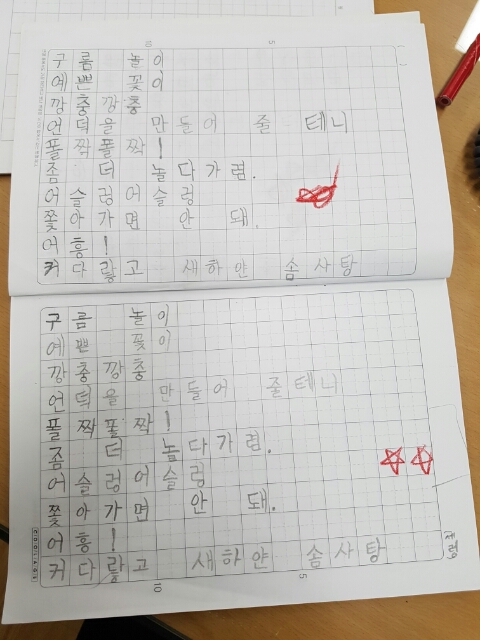 구름 놀이
예쁜 꽃이
깡충깡충
언덕을 만들어 줄 테니
폴짝폴짝!
좀 더 놀다가렴.
어슬렁어슬렁
쫓아가면 안 돼.
어흥!
커다랗고 새하얀 솜사탕
구름 놀이
예쁜 꽃이
깡충깡충
언덕을 만들어 줄테니
폴짝폴짝!
좀 더 놀다가렴.
어슬렁어슬렁
쫓아가면 안 돼.
어흥!
커다랗고 새하얀 솜사탕
10
5